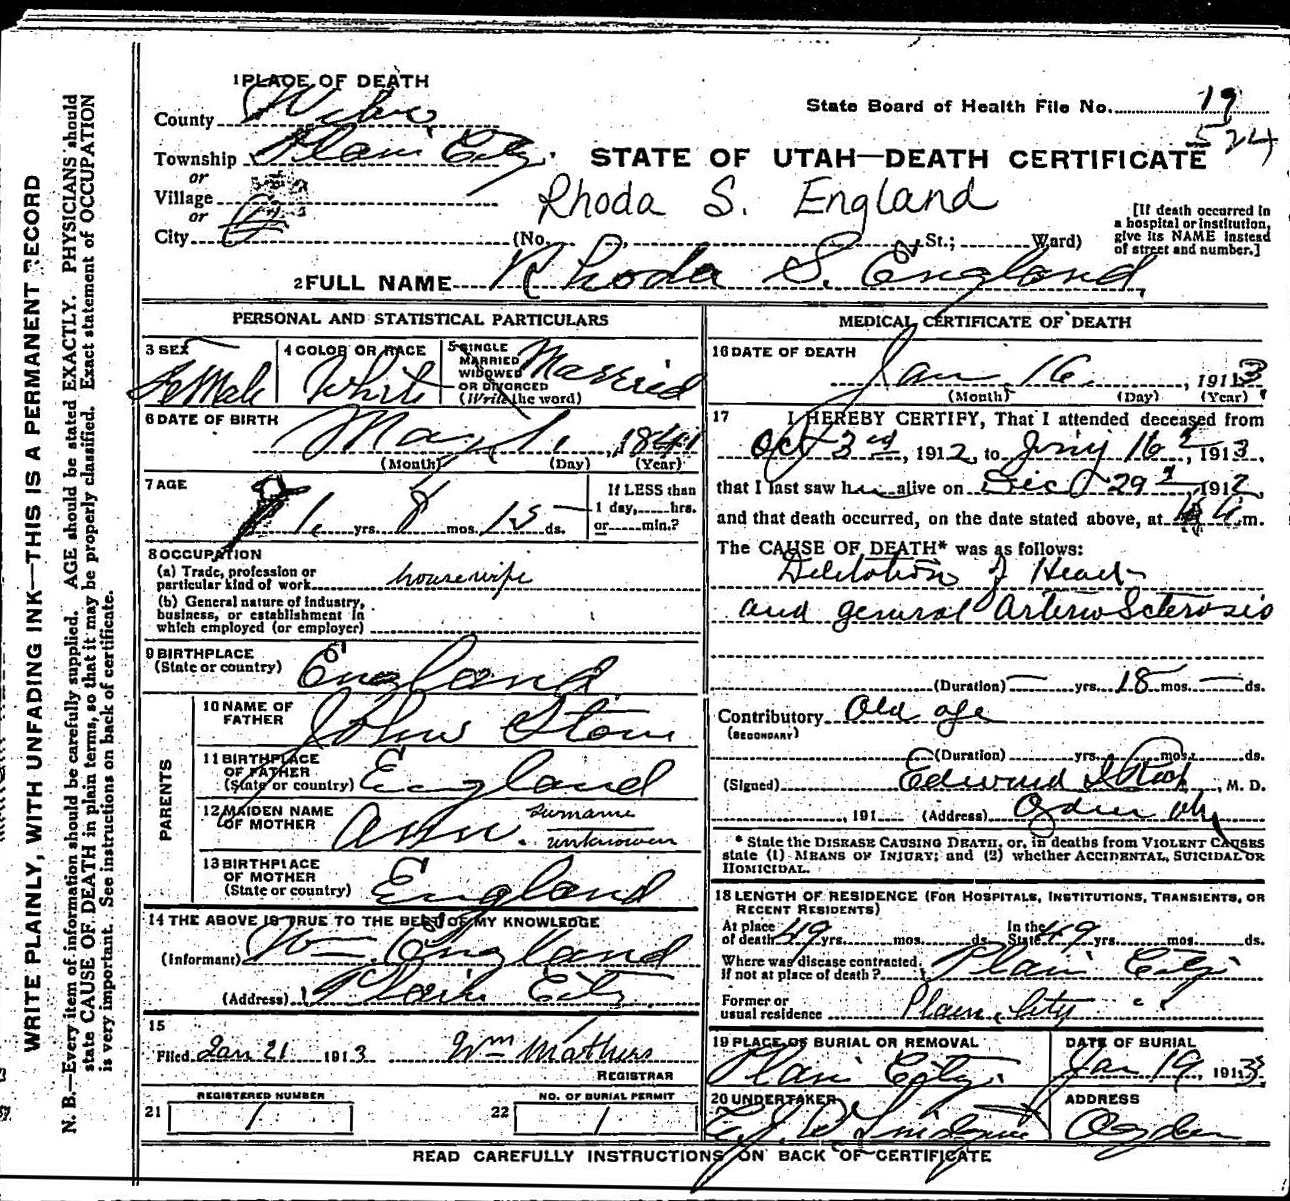 WRITE PLAINLY, WITH UNFADING INK—THIS IS A PERMANENT RECORD
N. B.—Every item of information should be carefully supplied. AGE should be stated EXACTLY. PHYSICIANS should
state CAUSE OF DEATH in plain terms, so that it may be properly classified. Exact statement of OCCUPATION
is very important. See instructions on back of certificate.
1 PLACE OF DEATH
State Board of Health File No. 19
524
County Weber
Township Plain City
or
STATE OF UTAH—DEATH CERTIFICATE
Village
or
Rhoda S. England
City (No. , St.; Ward)
[If death occurred in
a hospital or institution,
give its NAME instead
of street and number.]
2 FULL NAME Rhoda S. England
PERSONAL AND STATISTICAL PARTICULARS
3 SEX Female
4 COLOR OR RACE White
5 SINGLE
MARRIED
WIDOWED
OR DIVORCED
(Write the word)
Married
6 DATE OF BIRTH
May 1, 1841
(Month) (Day) (Year)
7 AGE
71 yrs. 8 mos. 15 ds.
If LESS than
1 day, hrs.
or min.?
8 OCCUPATION
(a) Trade, profession or
particular kind of work housewife
(b) General nature of industry,
business, or establishment in
which employed (or employer)
9 BIRTHPLACE
(State or country) England
PARENTS
10 NAME OF
FATHER John
11 BIRTHPLACE
OF FATHER
(State or country) England
12 MAIDEN NAME
OF MOTHER Ann. surname
unknown
13 BIRTHPLACE
OF MOTHER
(State or country) England
14 THE ABOVE IS TRUE TO THE BEST OF MY KNOWLEDGE
(Informant) Wm England
(Address) Plain City
15
Filed Jan 21 1913 Wm Mathers
REGISTRAR
21 REGISTERED NUMBER
1
22 NO. OF BURIAL PERMIT
1
MEDICAL CERTIFICATE OF DEATH
16 DATE OF DEATH
Jan 16, 1913
(Month) (Day) (Year)
17 I HEREBY CERTIFY, That I attended deceased from
Oct 3rd, 1912, to 16, 1913,
that I last saw her alive on Dec 29, 1912,
and that death occurred, on the date stated above, at m.
The CAUSE OF DEATH* was as follows:
Dilitation of Heart
and general Arterio Sclerosis
(Duration) yrs. 18 mos. ds.
Contributory Old age
(SECONDARY)
(Duration) yrs. mos. ds.
(Signed) Edward I , M. D.
, 191 (Address) Ogden
* State the DISEASE CAUSING DEATH, or, in deaths from VIOLENT CAUSES
state (1) MEANS OF INJURY; and (2) whether ACCIDENTAL, SUICIDAL OR
HOMICIDAL.
18 LENGTH OF RESIDENCE (FOR HOSPITALS, INSTITUTIONS, TRANSIENTS, OR
RECENT RESIDENTS)
At place In the
of death 49 yrs. mos. ds. State 49 yrs. mos. ds.
Where was disease contracted,
if not at place of death? Plain City
Former or
usual residence Plain City
19 PLACE OF BURIAL OR REMOVAL
Plain City
DATE OF BURIAL
Jan 19, 1913
20 UNDERTAKER
ADDRESS
Ogden
READ CAREFULLY INSTRUCTIONS ON BACK OF CERTIFICATE